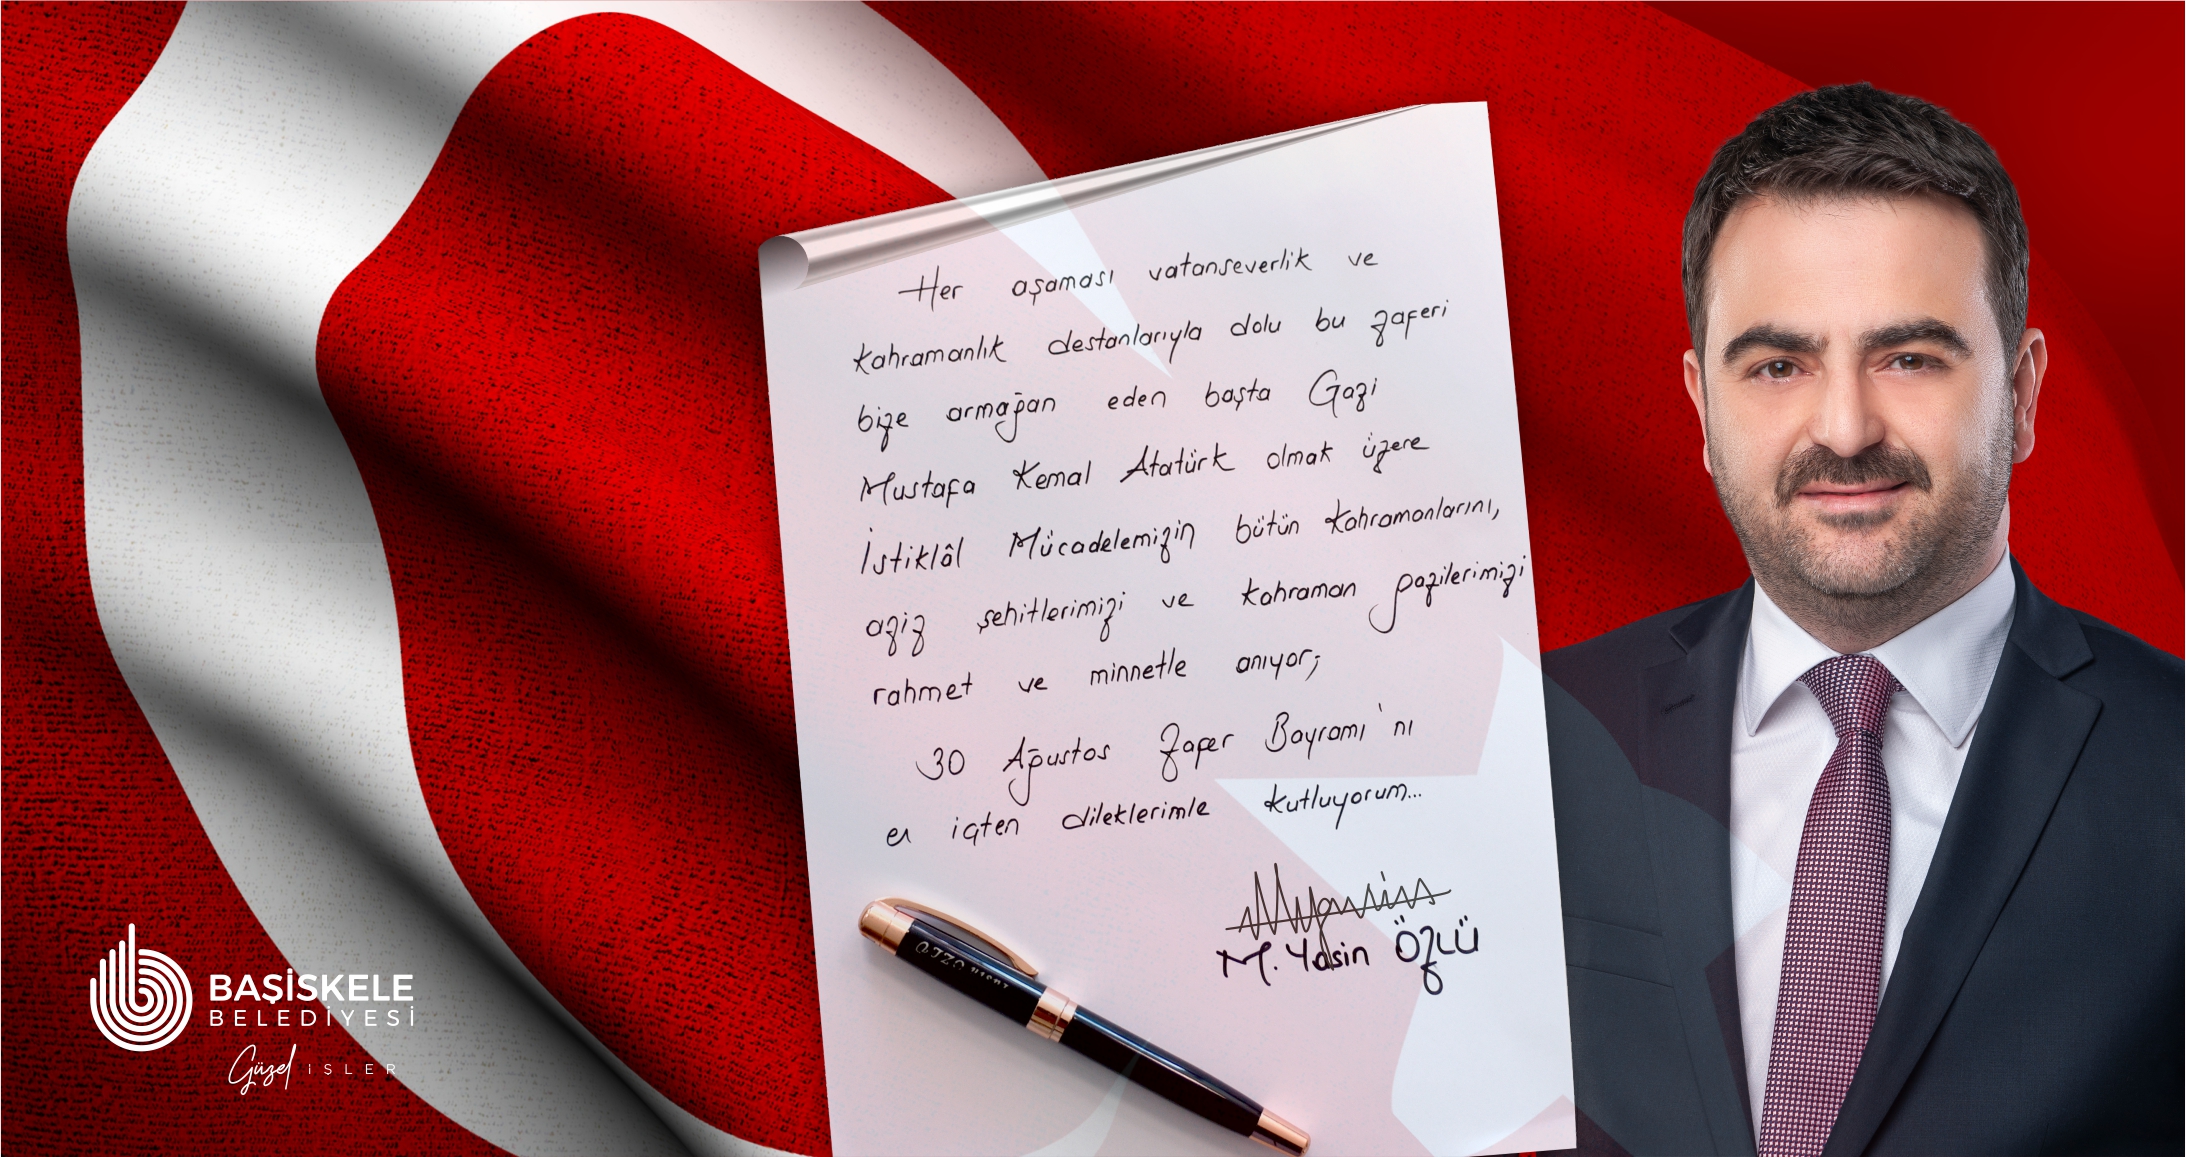 Her aşaması vatanseverlik ve
kahramanlık destanlarıyla dolu bu zaferi
bize armağan eden başta Gazi
Mustafa Kemal Atatürk olmak üzere
İstiklâl Mücadelemizin bütün kahramanlarını,
aziz şehitlerimizi ve kahraman gazilerimizi
rahmet ve minnetle anıyor;
30 Ağustos Zafer Bayramı'nı
en içten dileklerimle kutluyorum...
M. Yasin ÖZLÜ
BAŞİSKELE
BELEDİYESİ
Güzel İŞLER